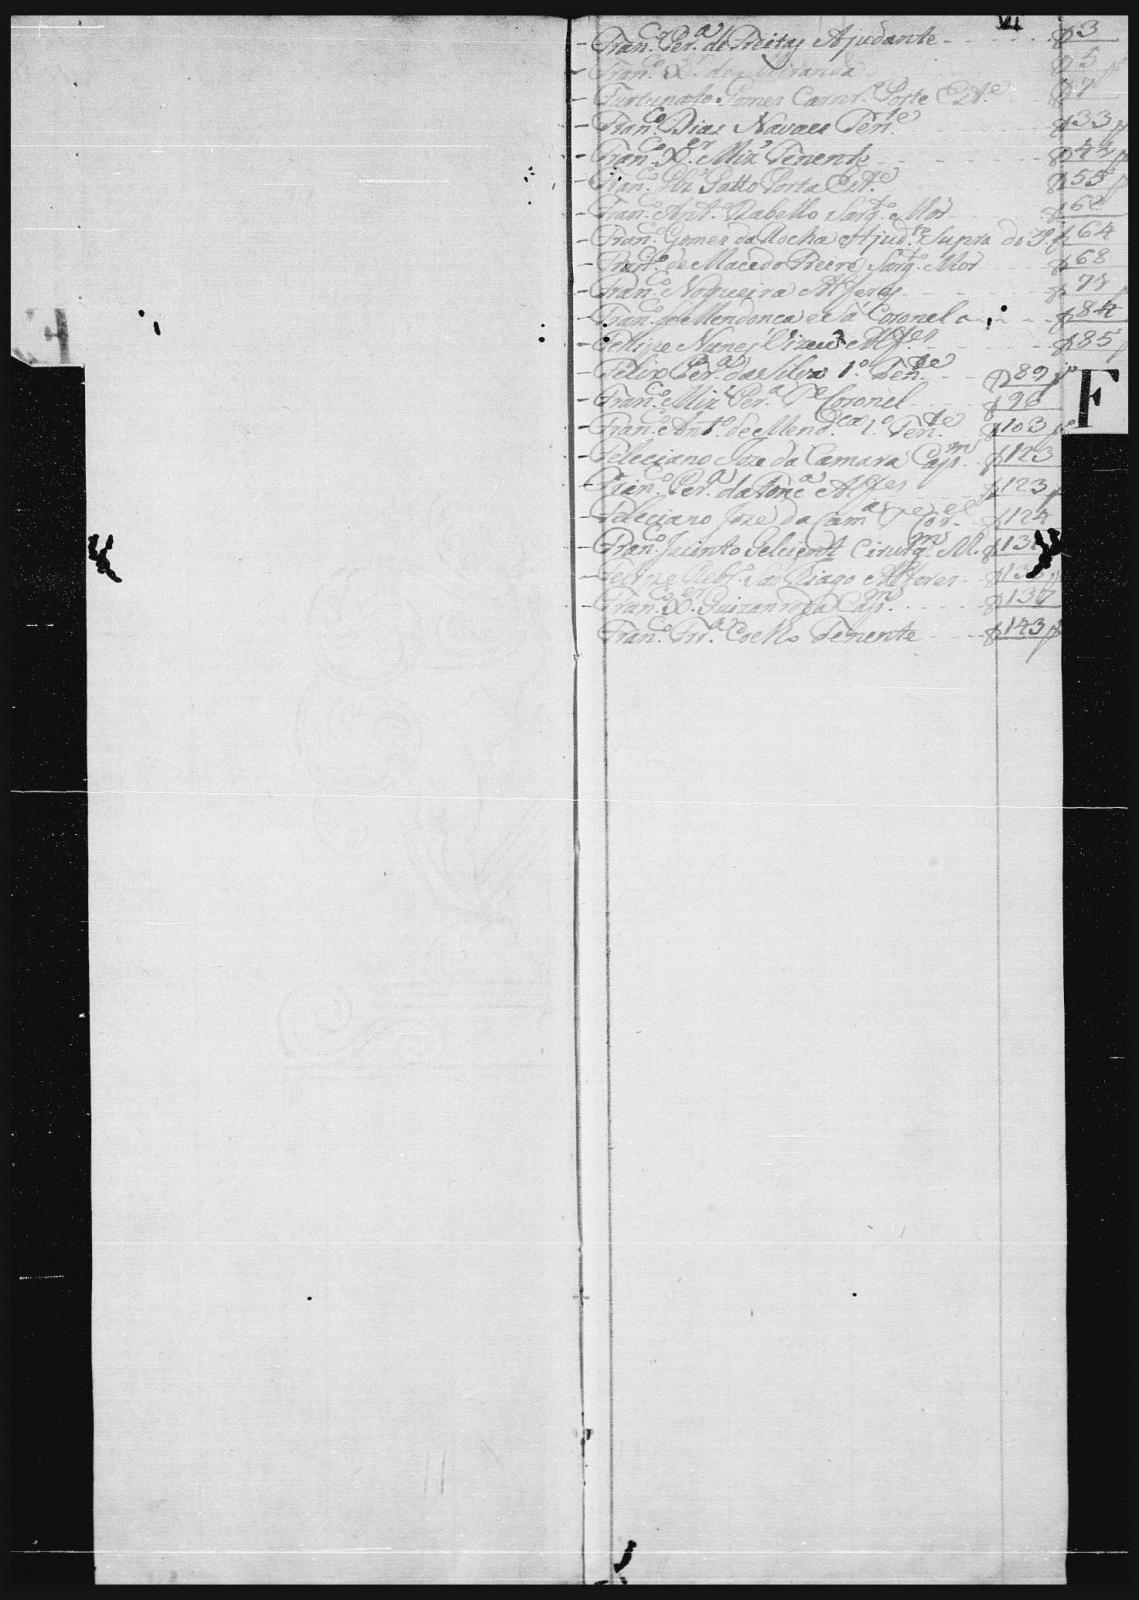 VI
Fran.co Per.a de Freitas Ajudante 3
Fran.co X.er de Miranda 5
Furtunato Gomes Carnr.o Porte Est.e 7
Fran.co Dias Navaes Ten.te 33
Fran.co X.er Miz' Tenente 44
Fran.co Glz' Porta Est.e 55
Fran.co Ant.o Rabello Sarg.to Mór
Fran.co Gomes da Rocha Ajud.te Supra 64
Fran.co de Macedo Freire Sarg.to Mor 68
Fran.co Nogueira Alferes
Fran.co de Mendonca e Sá Coronel 84
Felippe Nunes Alf.es 85
Felix Per.a da Silva 1.o Ten.te 89
Fran.co Miz' Per.a Coronel 96
Fran.co Ant.o de Mend.ca 1.o Ten.te 103
Feleciano Joze da Camara Cap.m 123
Fran.co Per.a da Alf.es 123
Feleciano Joze da Cam.a Cor.el 124
Fran.co Jacinto Cirurg. M.
Felipe San Tiago Alferes
Fran.co X.er Cap.m 137
Fran.co Coelho Tenente 143
F